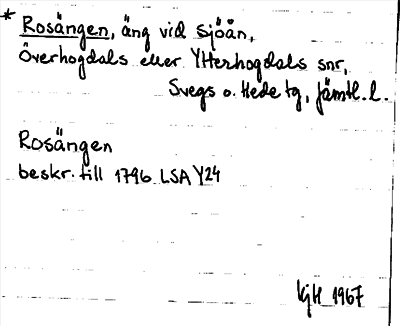 * Rosängen, äng vid sjöån,
Överhogdals eller Ytterhogdals snr,
Svegs o. Hede tg, Jämtl. l.
Rosängen
beskr. till 1796 LSA Y24
KjH 1967